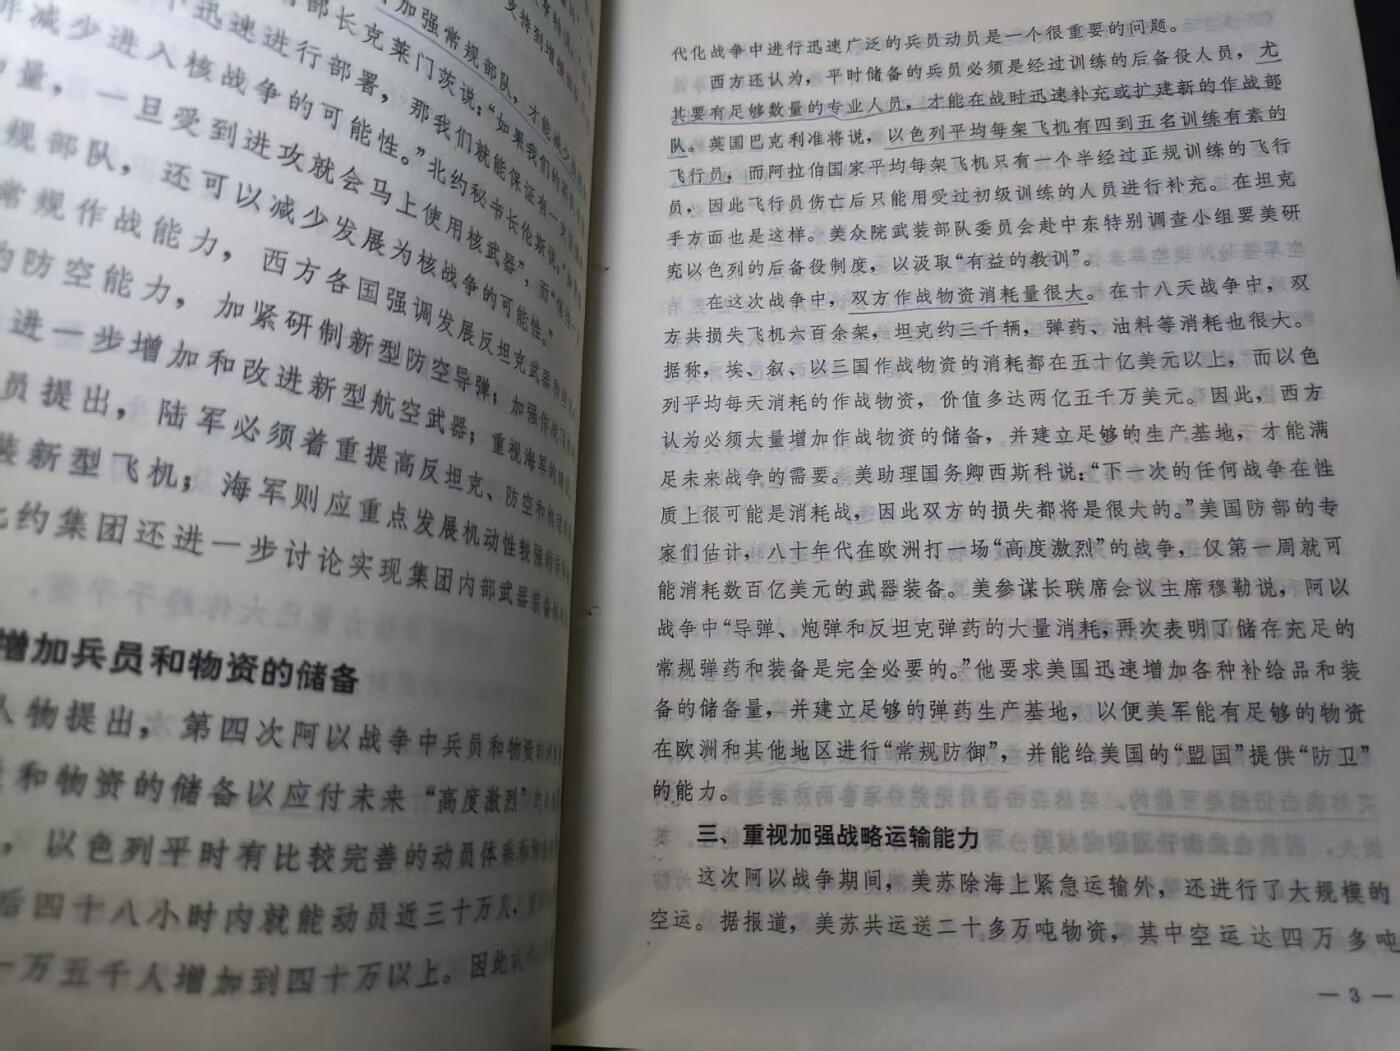 加强常规部队，才能减少
不迅速进行部署，那我们就能保证有一
部长克莱门茨说：“如果我们的
减少进入核战争的可能性。”北约秘书长伦斯说：
量，一旦受到进攻就会马上使用核武器”，而“保持
规部队，还可以减少发展为核战争的可能性。”
常规作战能力，西方各国强调发展反坦克武器和
的防空能力，加紧研制新型防空导弹；加强作战飞机
进一步增加和改进新型航空武器；重视海军的
员提出，陆军必须着重提高反坦克、防空和机动
装新型飞机；海军则应重点发展机动性较强的导弹
北约集团还进一步讨论实现集团内部武器装备标
增加兵员和物资的储备
人物提出，第四次阿以战争中兵员和物资的
和物资的储备以应付未来“高度激烈”的
，以色列平时有比较完善的动员体系和
后四十八小时内就能动员近三十万人，
一万五千人增加到四十万以上。因此认
代化战争中进行迅速广泛的兵员动员是一个很重要的问题。
西方还认为，平时储备的兵员必须是经过训练的后备役人员，尤
其要有足够数量的专业人员，才能在战时迅速补充或扩建新的作战部
队。英国巴克利准将说，以色列平均每架飞机有四到五名训练有素的
飞行员，而阿拉伯国家平均每架飞机只有一个半经过正规训练的飞行
员，因此飞行员伤亡后只能用受过初级训练的人员进行补充。在坦克
手方面也是这样。美众院武装部队委员会赴中东特别调查小组要美研
究以色列的后备役制度，以汲取“有益的教训”。
在这次战争中，双方作战物资消耗量很大。在十八天战争中，双
方共损失飞机六百余架，坦克约三千辆，弹药、油料等消耗也很大。
据称，埃、叙、以三国作战物资的消耗都在五十亿美元以上，而以色
列平均每天消耗的作战物资，价值多达两亿五千万美元。因此，西方
认为必须大量增加作战物资的储备，并建立足够的生产基地，才能满
足未来战争的需要。美助理国务卿西斯科说：“下一次的任何战争在性
质上很可能是消耗战，因此双方的损失都将是很大的。”美国防部的专
家们估计，八十年代在欧洲打一场“高度激烈”的战争，仅第一周就可
能消耗数百亿美元的武器装备。美参谋长联席会议主席穆勒说，阿以
战争中“导弹、炮弹和反坦克弹药的大量消耗，再次表明了储存充足的
常规弹药和装备是完全必要的。”他要求美国迅速增加各种补给品和装
备的储备量，并建立足够的弹药生产基地，以便美军能有足够的物资
在欧洲和其他地区进行“常规防御”，并能给美国的“盟国”提供“防卫”
的能力。
三、重视加强战略运输能力
这次阿以战争期间，美苏除海上紧急运输外，还进行了大规模的
空运。据报道，美苏共运送二十多万吨物资，其中空运达四万多吨
— 3 —